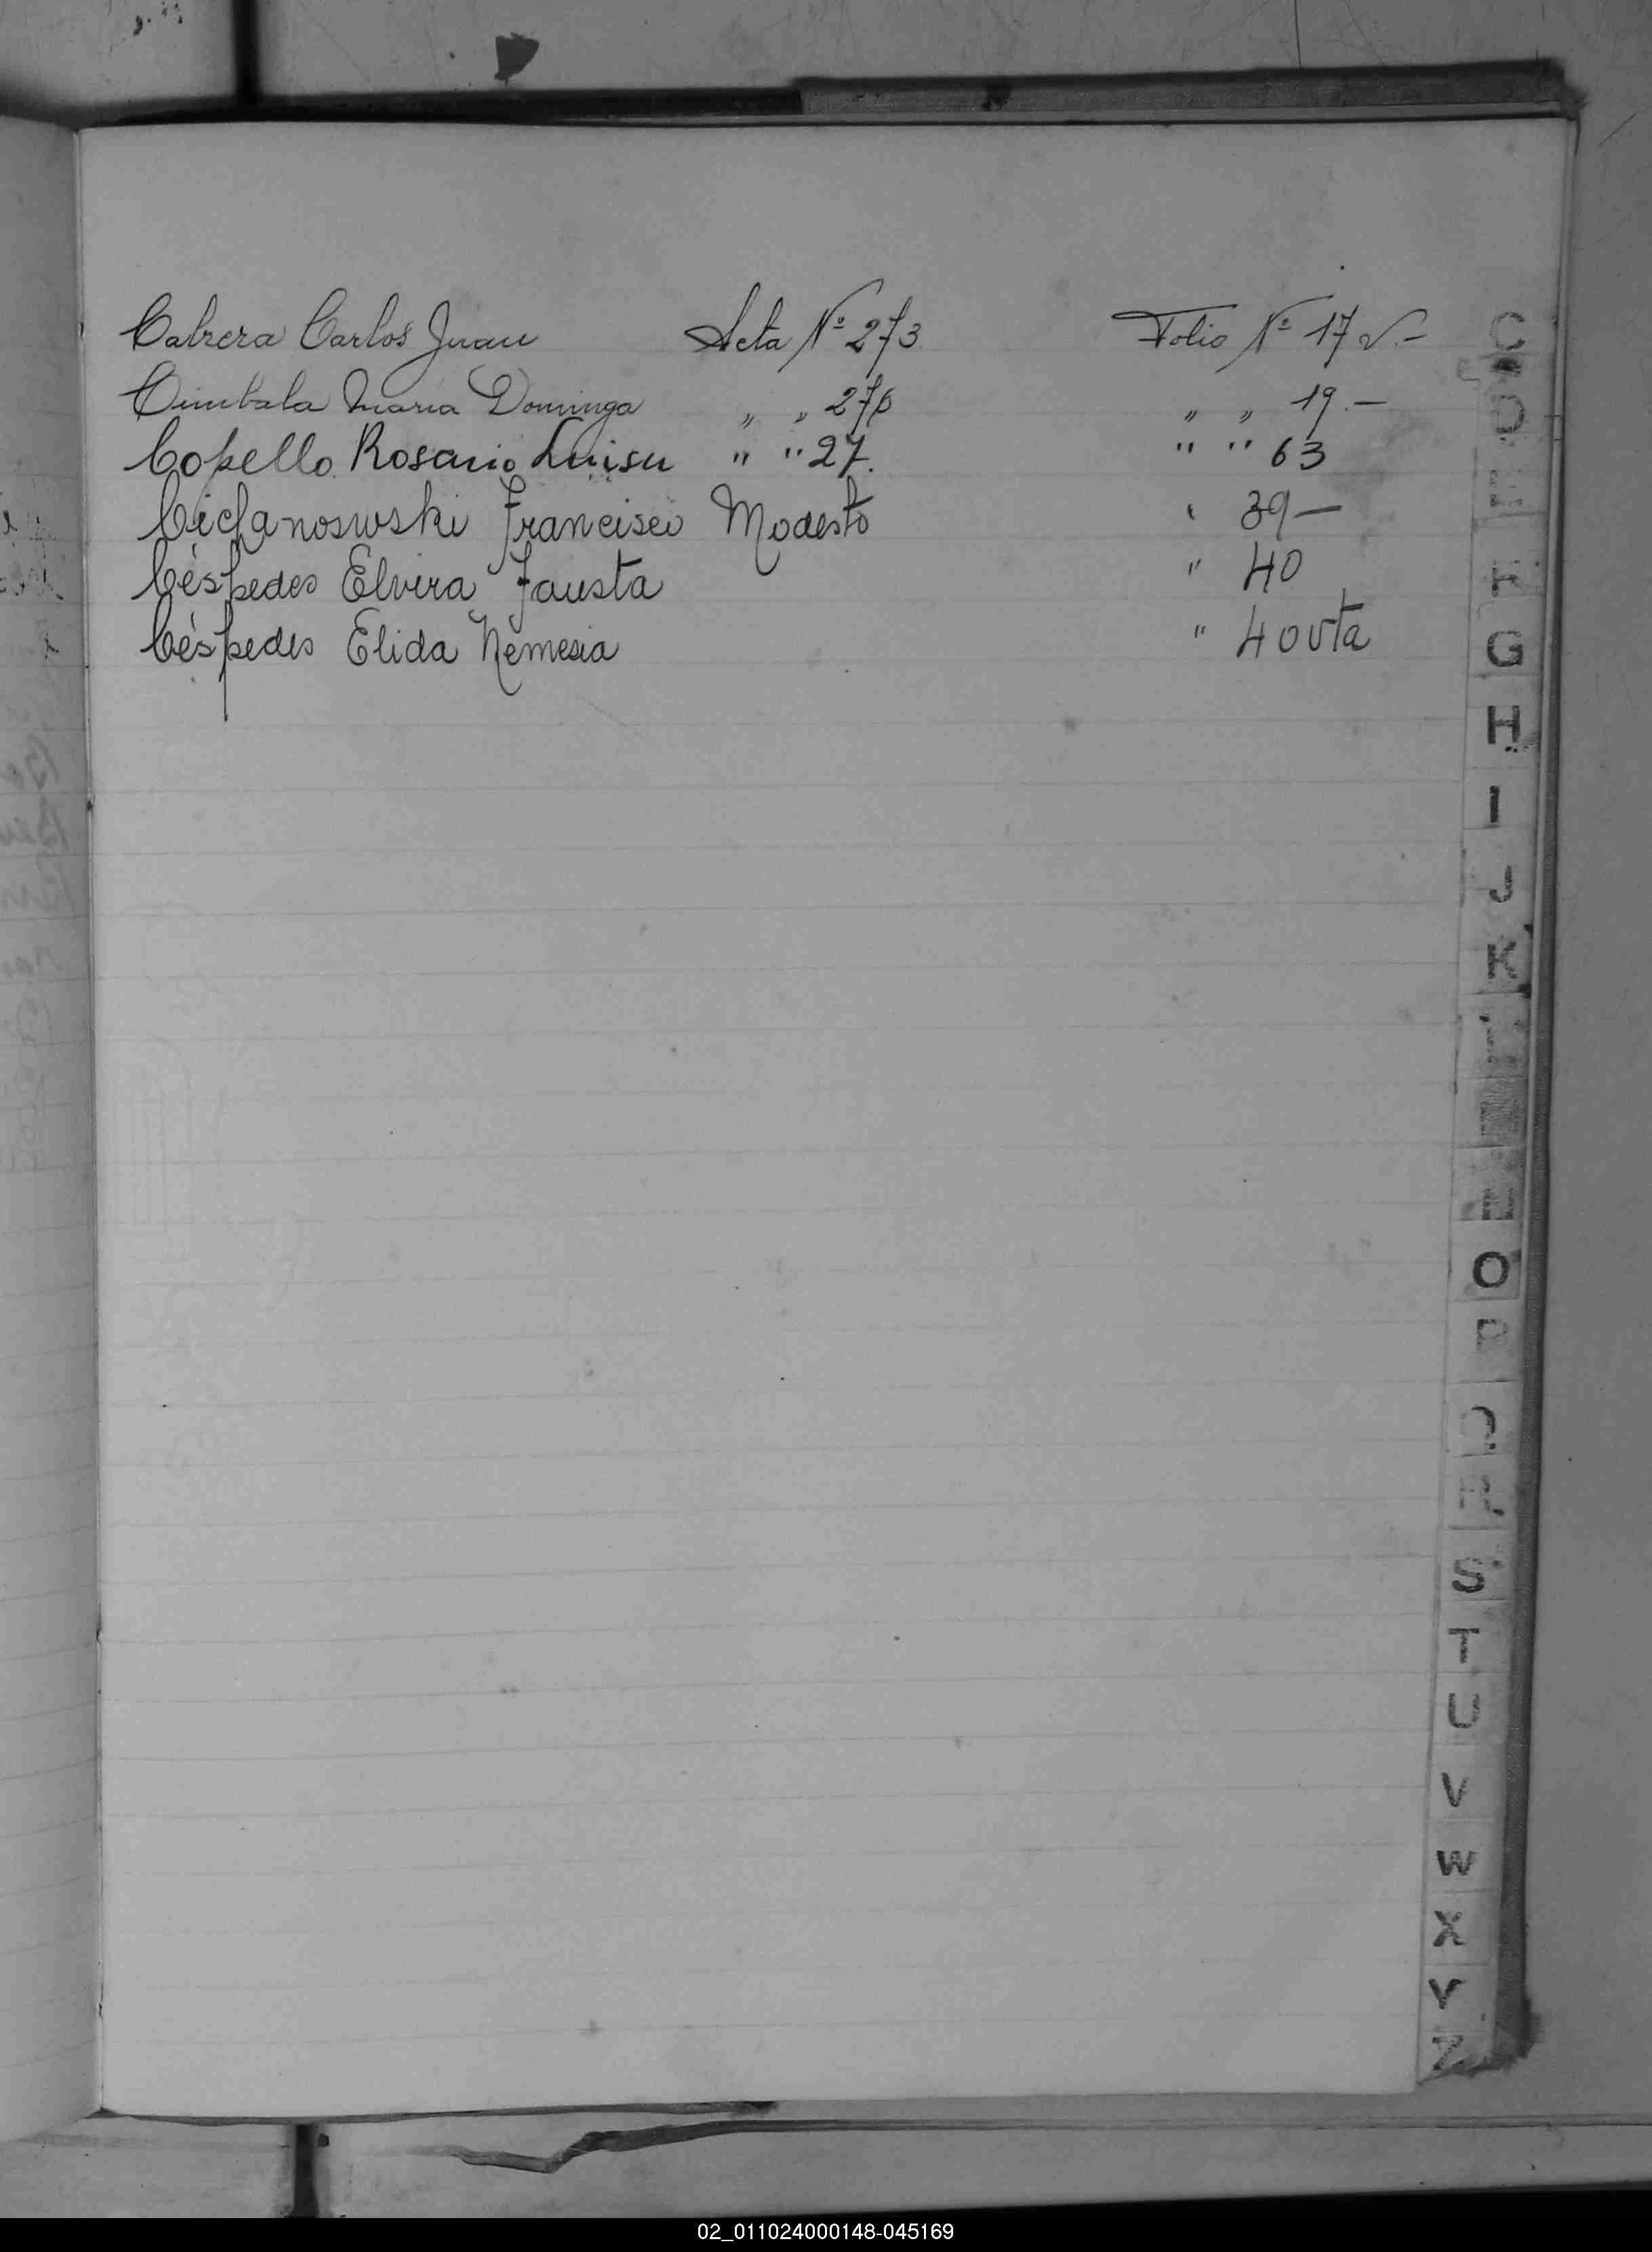 Cabrera Carlos Juan Acta Nº 273 Folio Nº 17 v.-
Cimbala Maria Dominga " " 276 " " 19.-
Copello Rosario Luisa " " 27. " " 63
Modesto " 39-
Céspedes Elvira Fausta " 40
Céspedes Elida Nemesia " 40 vta
C
D
E
F
G
H
I
J
K
O
P
Q
R
S
T
U
V
W
X
Y
Z
02_011024000148-045169